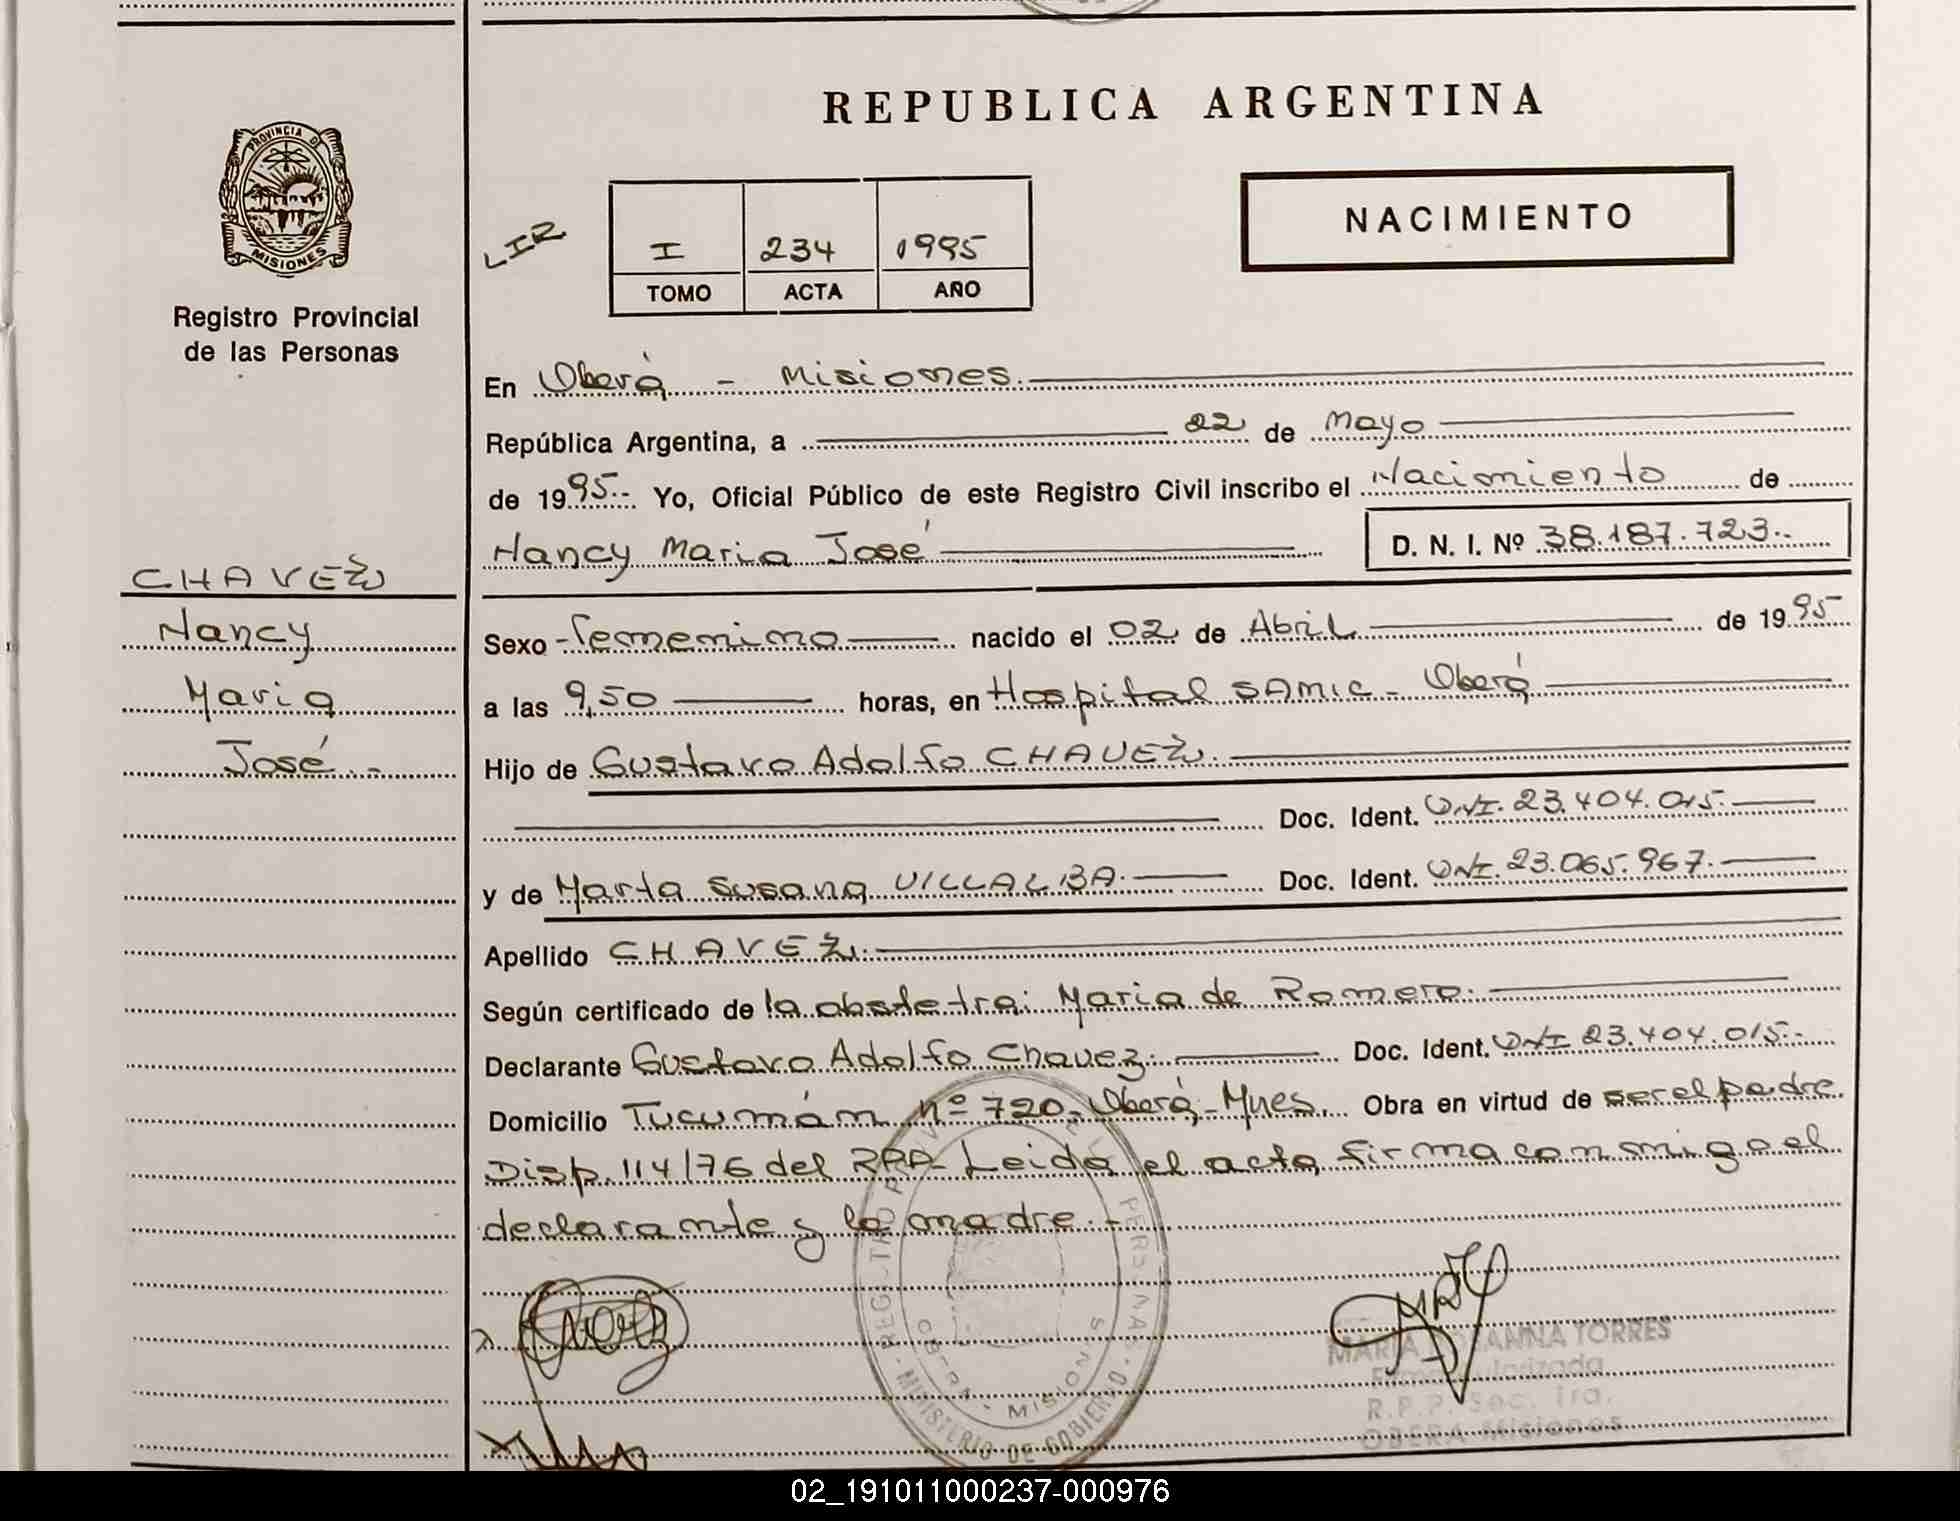 PROVINCIA D
MISIONES
Registro Provincial
de las Personas
CHAVEZ
Nancy
Maria
José.-
REPUBLICA ARGENTINA
LIR
I 234 1995
TOMO ACTA AÑO
NACIMIENTO
En Oberá - Misiones.
República Argentina, a 22 de Mayo
de 1995.- Yo, Oficial Público de este Registro Civil inscribo el Nacimiento de
Nancy Maria José D. N. I. Nº 38.187.723.-
Sexo Femenino nacido el 02 de Abril de 1995
a las 9,50 horas, en Hospital SAMIC - Oberá
Hijo de Gustavo Adolfo CHAVEZ.
Doc. Ident. DNI. 23.404.015.
y de Marta Susana VILLALBA. Doc. Ident. DNI. 23.065.967.
Apellido CHAVEZ.
Según certificado de la obstetra: Maria de Romero.
Declarante Gustavo Adolfo Chavez. Doc. Ident. DNI 23.404.015.-
Domicilio Tucumán nº 720- Oberá - Mnes. Obra en virtud de ser el padre
Disp. 114/76 del RPP- Leida el acta, firma conmigo el
declarante y la madre.-
REGISTRO PROV PERSONAS
OBERA - MISIONES
MINISTERIO DE GOBIERNO
MARIA ROSANNA TORRES
Firma Autorizada
R.P.P. Sec. 1ra.
OBERA - Misiones
02_191011000237-000976